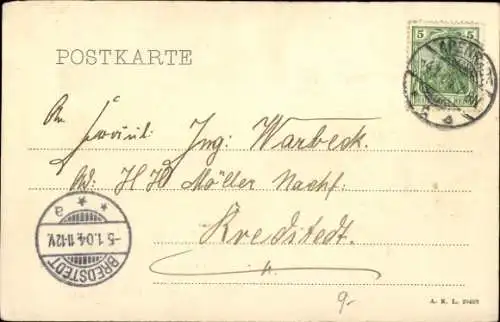 POSTKARTE
5 5
An
Fräul. Ing. Warbeck.
Ad: H H Möller Nachf.
Bredstedt.
BREDSTEDT
-5.1.04.11-12V.
a
9.-
A. R. L.